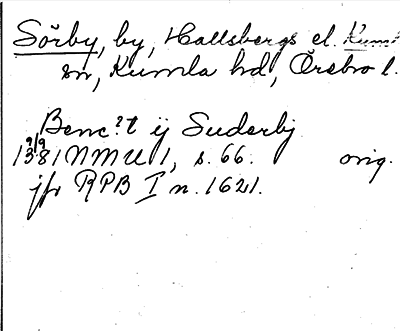 Sörby, by, Hallsbergs el. Kuml
sn, Kumla hd, Örebro l.
Benc?t ij Suderbj
9/9
1381 NMU 1, s. 66. orig.
jfr RPB I n. 1621.